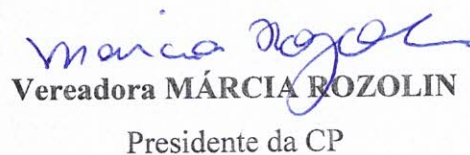 Marcia Rozol
Vereadora MÁRCIA ROZOLIN
Presidente da CP